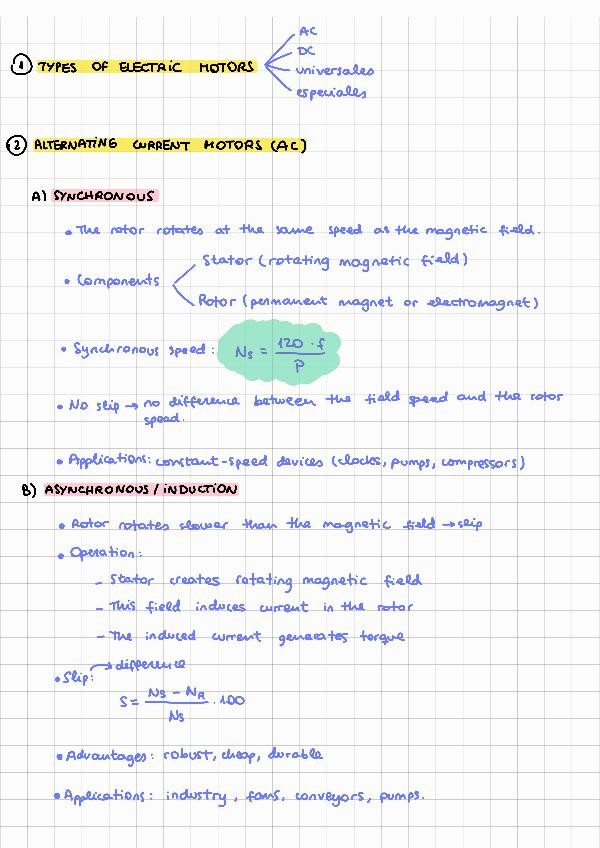 ① TYPES OF ELECTRIC MOTORS
AC
DC
universales
especiales
② ALTERNATING CURRENT MOTORS (AC)
A) SYNCHRONOUS
• The rotor rotates at the same speed as the magnetic field.
• Components
Stator (rotating magnetic field)
Rotor (permanent magnet or electromagnet)
• Synchronous speed: Ns = 120 · f / P
• No slip → no difference between the field speed and the rotor
speed.
• Applications: constant-speed devices (clocks, pumps, compressors)
B) ASYNCHRONOUS / INDUCTION
• Rotor rotates slower than the magnetic field → slip
• Operation:
– Stator creates rotating magnetic field
– This field induces current in the rotor
– The induced current generates torque
• Slip: → difference
S = Ns – NR / Ns · 100
• Advantages: robust, cheap, durable
• Applications: industry, fans, conveyors, pumps.